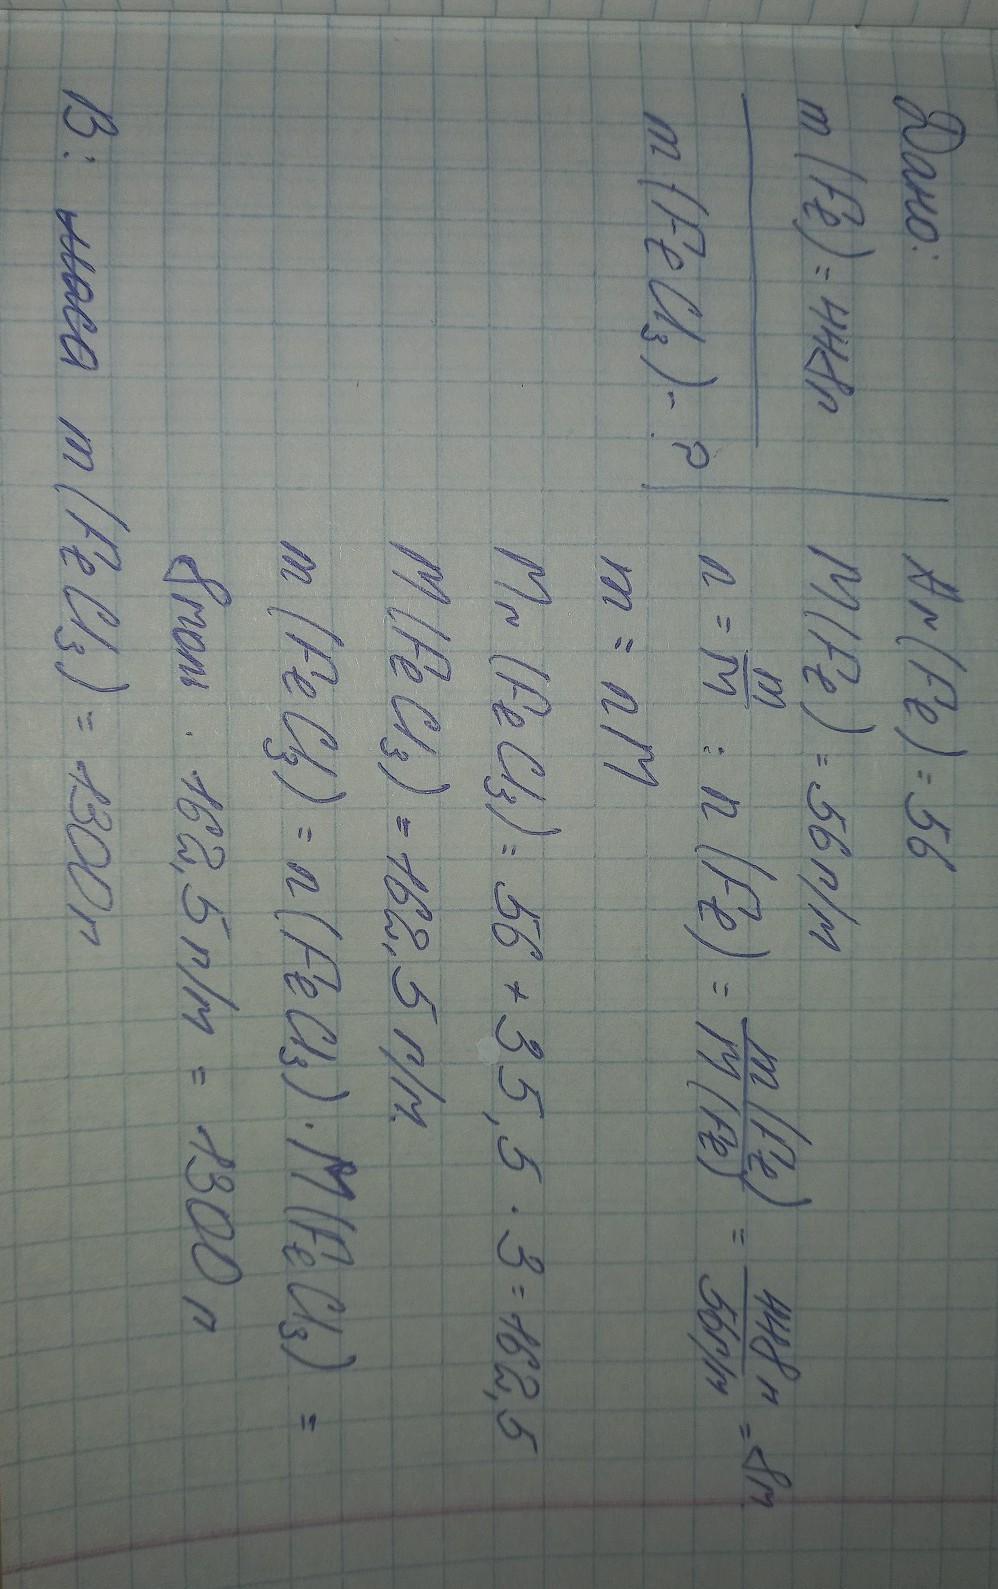 Дано:
m (Fe) = 448г
m (FeCl₃) - ?
Ar (Fe) = 56
M (Fe) = 56 г/м
n = m/M : n (Fe) = m (Fe)/M (Fe) = 448 г/56 г/м = 8м
m = n M
Mr (FeCl₃) = 56 + 35,5 · 3 = 162,5
M (FeCl₃) = 162,5 г/м
m (FeCl₃) = n (FeCl₃) · M (FeCl₃) =
8 · 162,5 г/м = 1300 г
В: m (FeCl₃) = 1300 г